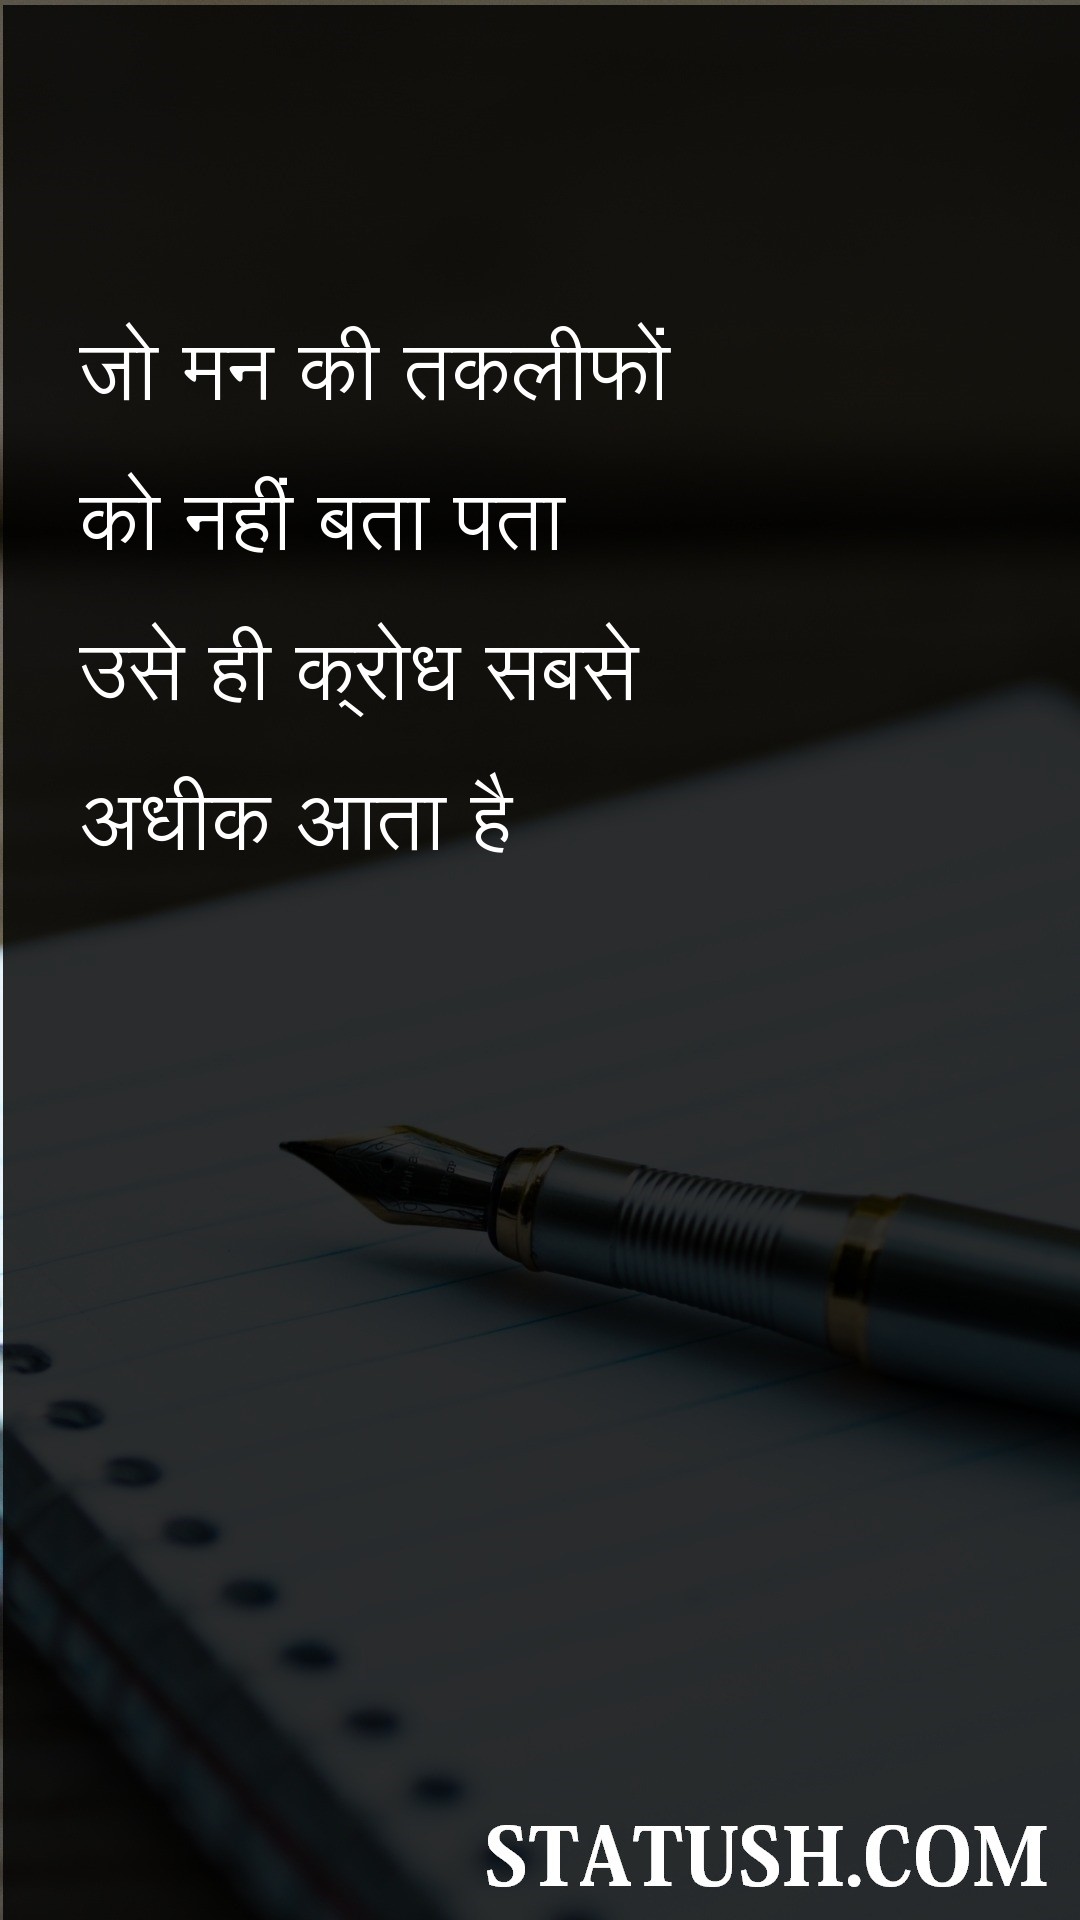 जो मन की तकलीफों
को नहीं बता पता
उसे ही क्रोध सबसे
अधीक आता है
STATUSH.COM